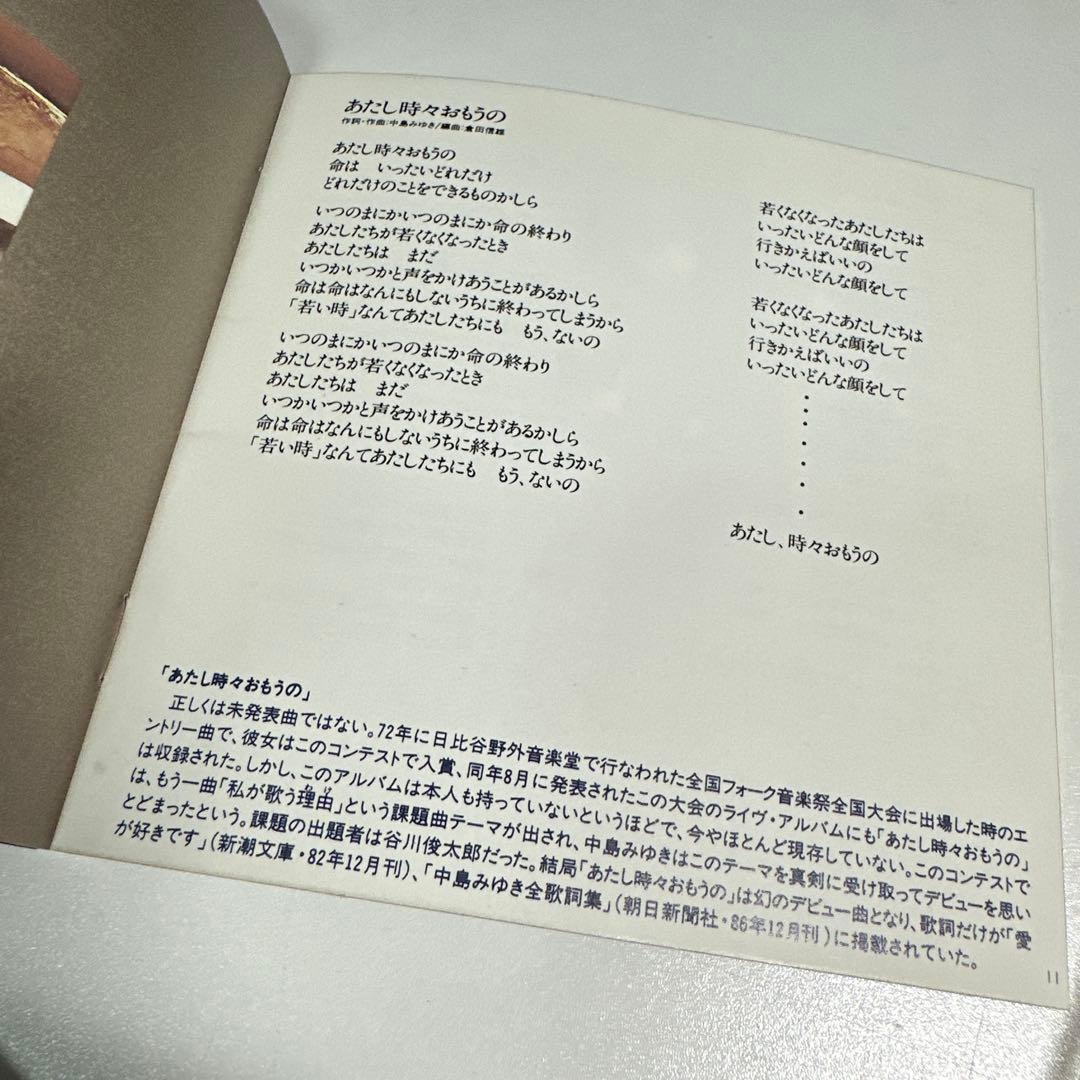 あたし時々おもうの
作詞・作曲:中島みゆき/編曲:倉田信雄
あたし時々おもうの
命は　いったいどれだけ
どれだけのことをできるものかしら
いつのまにかいつのまにか命の終わり
あたしたちが若くなくなったとき
あたしたちは　まだ
いつかいつかと声をかけあうことがあるかしら
命は命はなんにもしないうちに終わってしまうから
「若い時」なんてあたしたちにも　もう、ないの
いつのまにかいつのまにか命の終わり
あたしたちが若くなくなったとき
あたしたちは　まだ
いつかいつかと声をかけあうことがあるかしら
命は命はなんにもしないうちに終わってしまうから
「若い時」なんてあたしたちにも　もう、ないの
若くなくなったあたしたちは
いったいどんな顔をして
行きかえばいいの
いったいどんな顔をして
若くなくなったあたしたちは
いったいどんな顔をして
行きかえばいいの
いったいどんな顔をして
・
・
・
・
・
・
・
あたし、時々おもうの
「あたし時々おもうの」
正しくは未発表曲ではない。72年に日比谷野外音楽堂で行なわれた全国フォーク音楽祭全国大会に出場した時のエ
ントリー曲で、彼女はこのコンテストで入賞、同年8月に発表されたこの大会のライヴ・アルバムにも「あたし時々おもうの」
は収録された。しかし、このアルバムは本人も持っていないというほどで、今やほとんど現存していない。このコンテストで
は、もう一曲「私が歌う理由」という課題曲テーマが出され、中島みゆきはこのテーマを真剣に受け取ってデビューを思い
とどまったという。課題の出題者は谷川俊太郎だった。結局「あたし時々おもうの」は幻のデビュー曲となり、歌詞だけが「愛
が好きです」(新潮文庫・82年12月刊)、「中島みゆき全歌詞集」(朝日新聞社・86年12月刊)に掲載されていた。
11